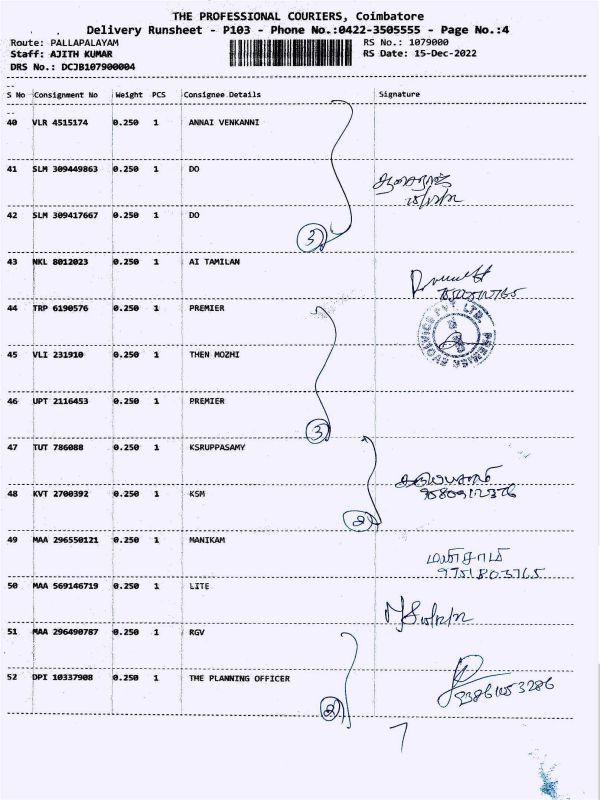 THE PROFESSIONAL COURIERS, Coimbatore
Delivery Runsheet - P103 - Phone No.:0422-3505555 - Page No.:4
Route: PALLAPALAYAM RS No.: 1079000
Staff: AJITH KUMAR RS Date: 15-Dec-2022
DRS No.: DCJB107900004
S No Consignment No Weight PCS Consignee Details Signature
40 VLR 4515174 0.250 1 ANNAI VENKANNI
41 SLM 309449863 0.250 1 DO
42 SLM 309417667 0.250 1 DO
3
43 NKL 8012023 0.250 1 AI TAMILAN
44 TRP 6190576 0.250 1 PREMIER
45 VLI 231910 0.250 1 THEN MOZHI
46 UPT 2116453 0.250 1 PREMIER
3
47 TUT 786088 0.250 1 KSRUPPASAMY
48 KVT 2700392 0.250 1 KSM
2
49 MAA 296550121 0.250 1 MANIKAM
9751803765
50 MAA 569146719 0.250 1 LITE
51 MAA 296490787 0.250 1 RGV
52 DPI 10337908 0.250 1 THE PLANNING OFFICER
2
7